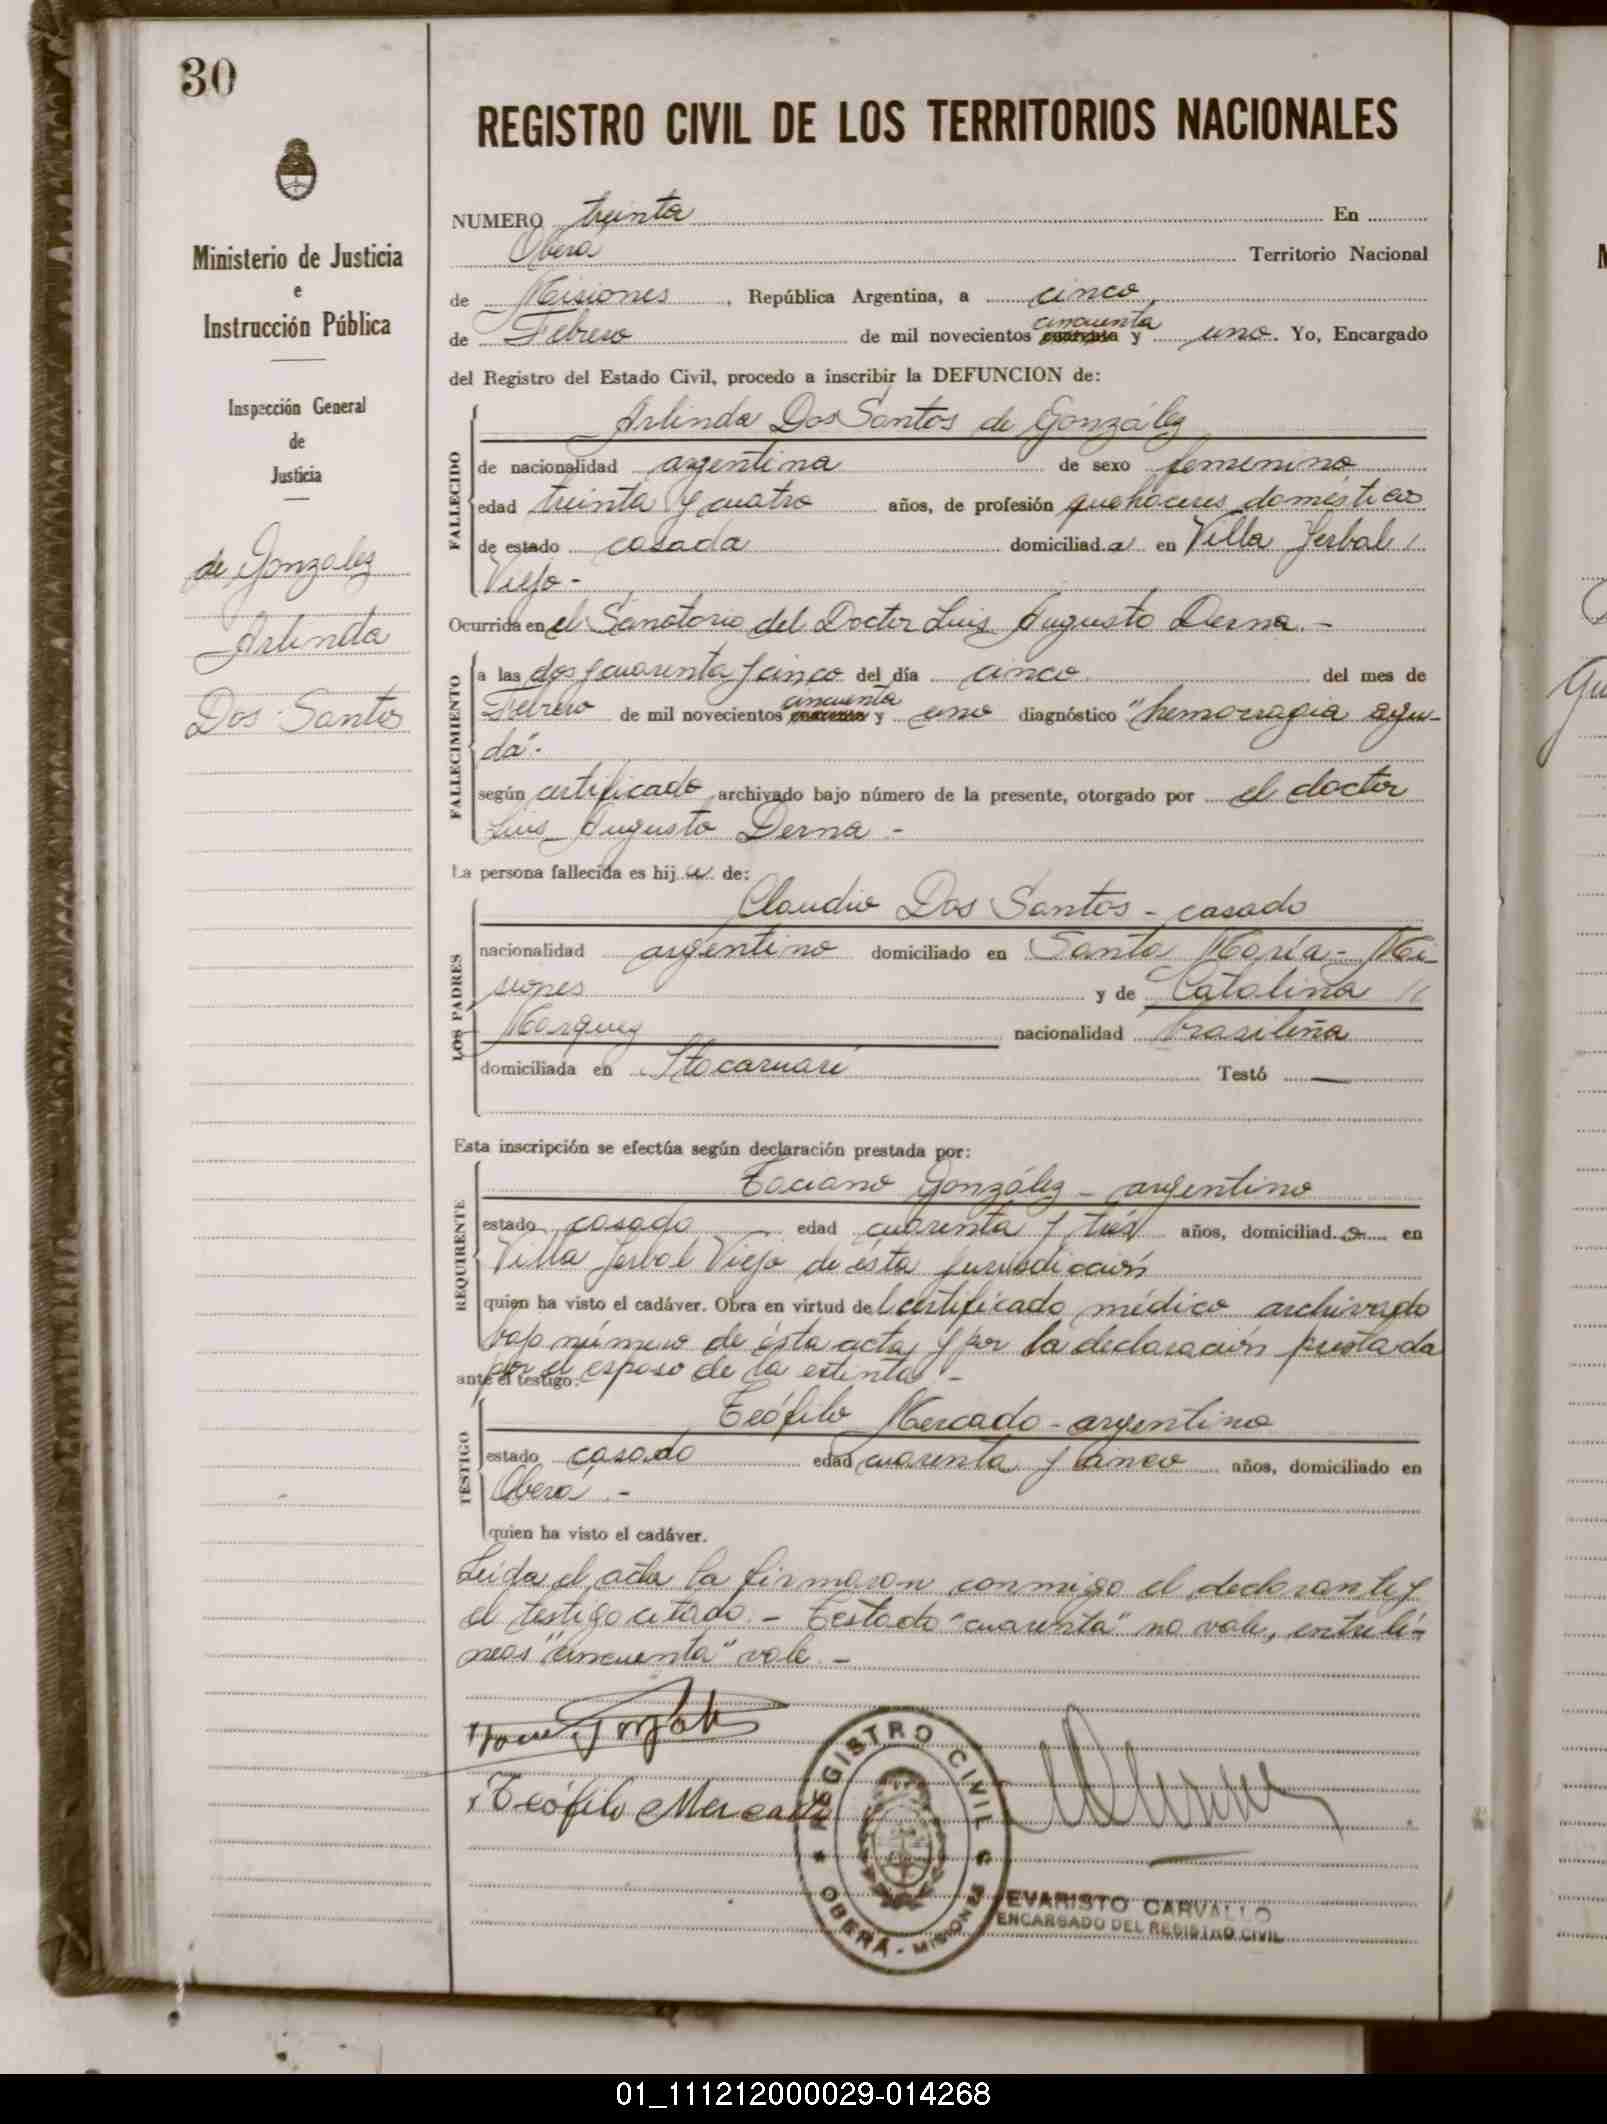 30
REGISTRO CIVIL DE LOS TERRITORIOS NACIONALES
Ministerio de Justicia
e
Instrucción Pública
Inspección General
de
Justicia
de Gonzalez
Arlinda
Dos Santos
NUMERO treinta En
Oberá Territorio Nacional
de Misiones, República Argentina, a cinco
de Febrero de mil novecientos cuarenta cincuenta y uno. Yo, Encargado
del Registro del Estado Civil, procedo a inscribir la DEFUNCION de:
FALLECIDO
Arlinda Dos Santos de González
de nacionalidad argentina de sexo femenino
edad treinta y cuatro años, de profesión quehaceres domésticos
de estado casada domiciliada en Villa Yerbal
Viejo -
Ocurrida en el Sanatorio del Doctor Luis Augusto Derna. -
FALLECIMIENTO
a las dos y cuarenta y cinco del día cinco del mes de
Febrero de mil novecientos cuarenta cincuenta y uno diagnóstico "hemorragia agu-
da".
según certificado archivado bajo número de la presente, otorgado por el doctor
Luis Augusto Derna -
La persona fallecida es hija de:
LOS PADRES
Claudio Dos Santos - casado
nacionalidad argentino domiciliado en Santa María - Mi-
siones y de Catalina
Marquez nacionalidad brasileña
domiciliada en Itacaruaré Testó —
Esta inscripción se efectúa según declaración prestada por:
REQUIRENTE
Taciano González - argentino
estado casado edad cuarenta y tres años, domiciliado en
Villa Yerbal Viejo de ésta jurisdicción
quien ha visto el cadáver. Obra en virtud del certificado médico archivado
bajo número de ésta acta y por la declaración prestada
por el esposo de la extinta -
ante el testigo:
TESTIGO
Teófilo Mercado - argentino
estado casado edad cuarenta y cinco años, domiciliado en
Oberá. -
quien ha visto el cadáver.
Leída el acta la firmaron conmigo el declarante y
el testigo citado. - Testado "cuarenta" no vale, entrelí-
neas "cincuenta" vale. -
Teófilo Mercado
REGISTRO CIVIL
OBERÁ - MISIONES
EVARISTO CARVALLO
ENCARGADO DEL REGISTRO CIVIL
01_111212000029-014268